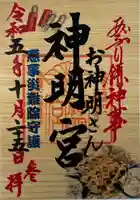 神事
お神明さん
神明宮
悪事災難除守護
令和五年十月二五日 参拝